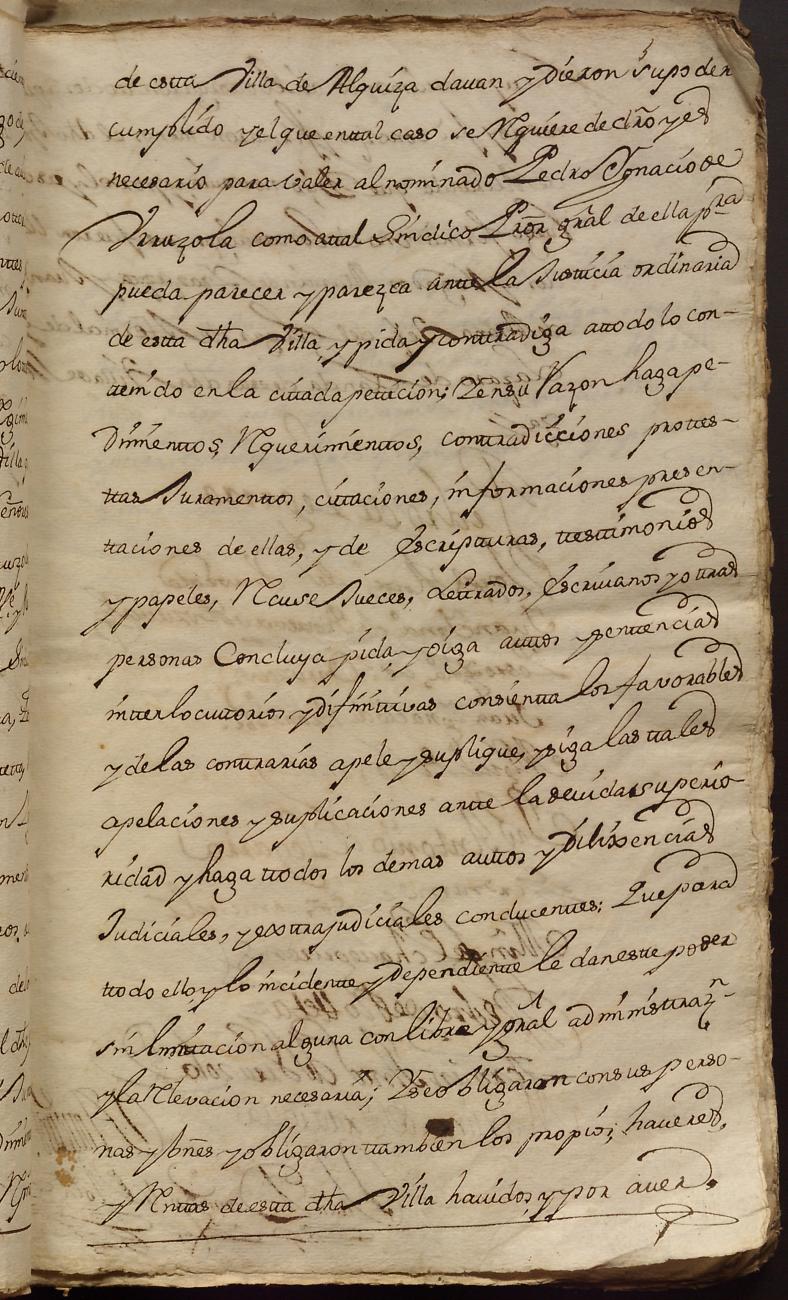 de estta Villa de Alquiza davan y dieron su poder
cumplido y el que en ttal caso se Requiere de dro y es
necesario para valer al nominado Pedro Ygnacio de
Yruzola como attal Sindico Pror gral de ella pra
pueda parecer y parezca antte la Justicia ordinaria
de estta dha Villa, y pida y conttradiga a ttodo lo con-
ttenido en la cittada petticion; Y en su Razon haga pe-
dimienttos, Requerimienttos, conttradicciones prottes-
ttas Juramenttos, cittaciones, informaciones presen-
ttaciones de ellas, y de Escriptturas, ttesttimonios
y papeles, Recuse Jueces, Lettrados, Escrivanos y ottras
personas Concluya pida, y oiga auttos y senttencias
intterlocuttorios y difinittivas consientta los favorables
y de las conttrarias apele y suplique, y siga las ttales
apelaciones y suplicaciones antte la devida superio-
ridad y haga ttodos los demas auttos y Dilixencias
Judiciales, y exttrajudiciales conducenttes; Que para
ttodo ello y lo incidentte y dependientte le dan estte poder
sin limittacion alguna con libre y gral administtrazn
y la Relevacion necesaria; Y se obligaron con sus perso-
nas y bnes y obligaron ttambien los propios, haveres,
y Renttas de estta dha Villa havidos, y por aver.